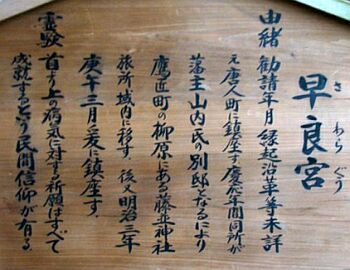 早良宮
さわらぐう
由緒 勧請年月縁起沿革等未詳
元唐人町に鎮座す慶応年間同所が
藩主山内氏の別邸となるにより
鷹匠町の柳原にある藤並神社
旅所域内に移す、後又明治三年
庚午三月爰に鎮座す。
霊験 首より上の病気に対する祈願はすべて
成就するとの民間信仰が有る